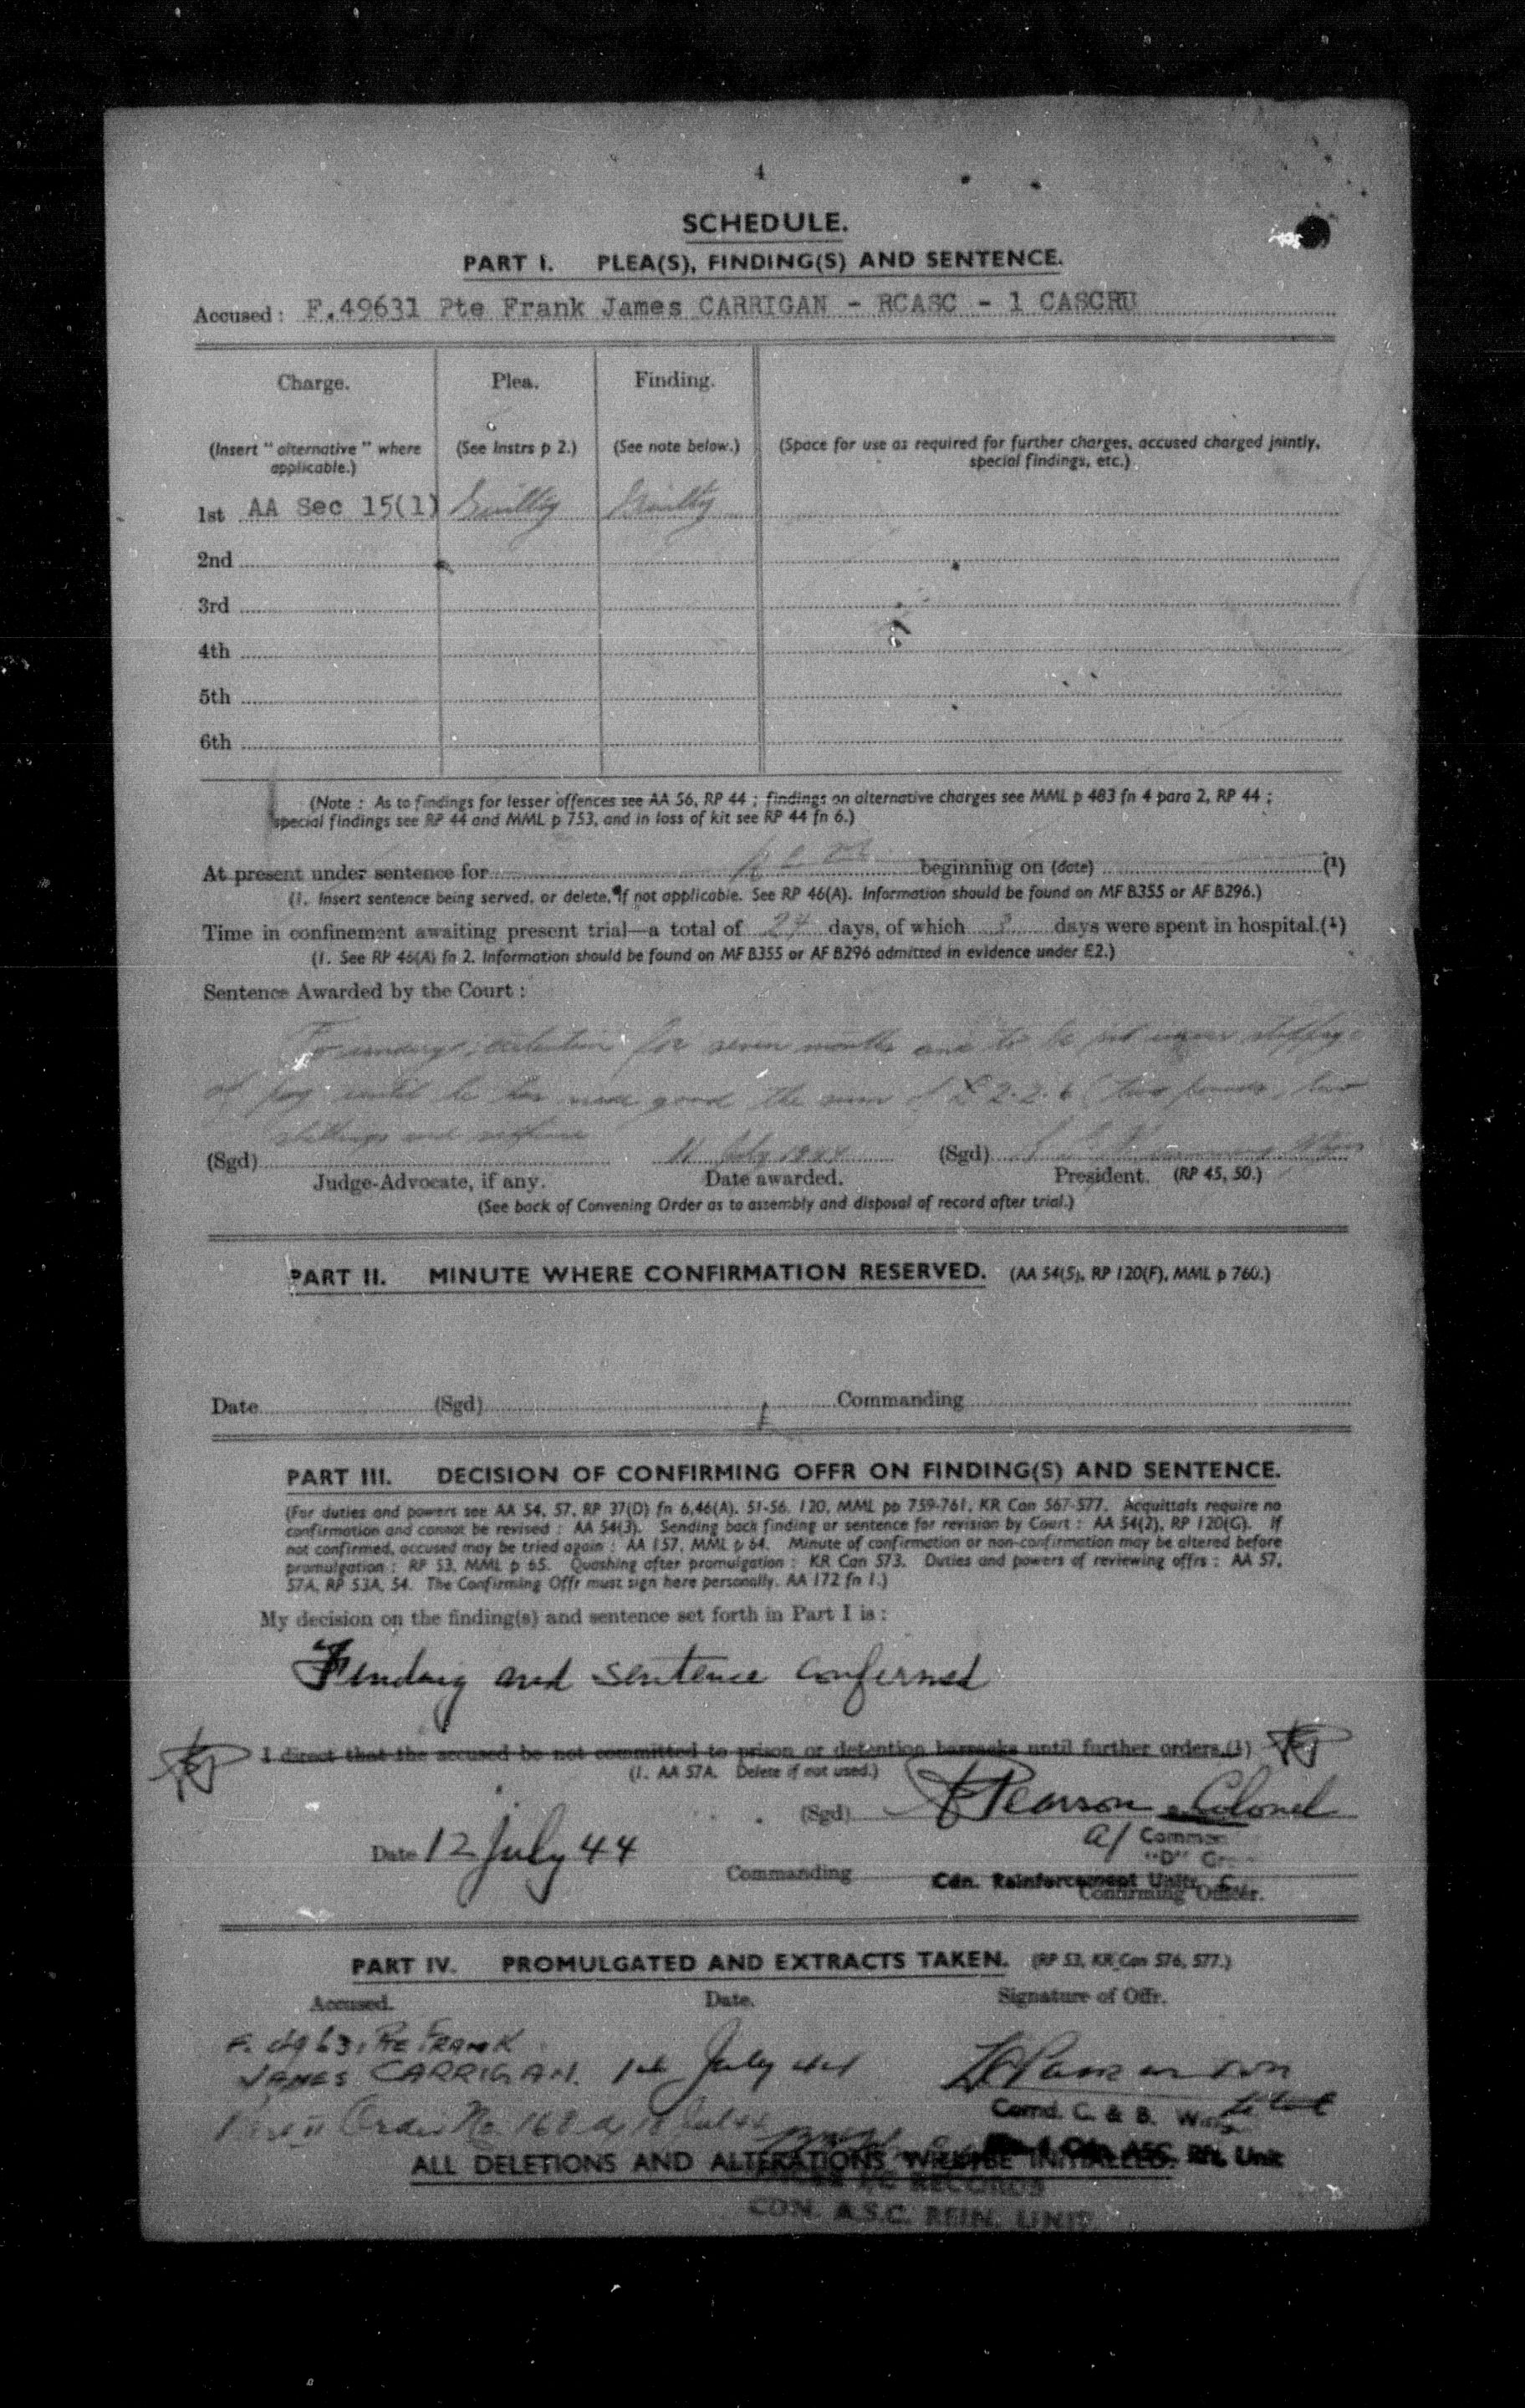 4
SCHEDULE.
PART I. PLEA(S), FINDING(S) AND SENTENCE.
Accused: F.49631 Pte Frank James CARRIGAN - RCASC - 1 CASCRU
Charge. Plea. Finding.
(Insert "alternative" where applicable.) (See Instrs p 2.) (See note below.) (Space for use as required for further charges, accused charged jointly, special findings, etc.)
1st AA Sec 15(1) Guilty Guilty
2nd
3rd
4th
5th
6th
(Note : As to findings for lesser offences see AA 56, RP 44 ; findings on alternative charges see MML p 483 fn 4 para 2, RP 44 ;
special findings see RP 44 and MML p 753, and in loss of kit see RP 44 fn 6.)
At present under sentence for beginning on (date) (1)
(1. Insert sentence being served, or delete, if not applicable. See RP 46(A). Information should be found on MF B355 or AF B296.)
Time in confinement awaiting present trial—a total of 24 days, of which days were spent in hospital.(1)
(1. See RP 46(A) fn 2. Information should be found on MF B355 or AF B296 admitted in evidence under E2.)
Sentence Awarded by the Court :
To undergo detention for seven months and to be put under stoppage
of pay until he has made good the sum of £2.2.6 (two pounds, two
shillings and sixpence
(Sgd) 11 July 1944 (Sgd)
Judge-Advocate, if any. Date awarded. President. (RP 45, 50.)
(See back of Convening Order as to assembly and disposal of record after trial.)
PART II. MINUTE WHERE CONFIRMATION RESERVED. (AA 54(5), RP 120(F), MML p 760.)
Date (Sgd) Commanding
PART III. DECISION OF CONFIRMING OFFR ON FINDING(S) AND SENTENCE.
(For duties and powers see AA 54, 57, RP 37(D) fn 6,46(A), 51-56, 120, MML pp 759-761, KR Can 567-577. Acquittals require no
confirmation and cannot be revised : AA 54(3). Sending back finding or sentence for revision by Court : AA 54(2), RP 120(G). If
not confirmed, accused may be tried again : AA 157, MML p 64. Minute of confirmation or non-confirmation may be altered before
promulgation : RP 53, MML p 65. Quashing after promulgation : KR Can 573. Duties and powers of reviewing offrs : AA 57,
57A, RP 53A, 54. The Confirming Offr must sign here personally. AA 172 fn 1.)
My decision on the finding(s) and sentence set forth in Part I is :
Finding and sentence confirmed
I direct that the accused be not committed to prison or detention barracks until further orders.(1)
(1. AA 57A. Delete if not used.)
(Sgd) Pearson Colonel
a/ Comman
"D" Gr
Date 12 July 44
Commanding Cdn. Reinforcement Units
Confirming Officer.
PART IV. PROMULGATED AND EXTRACTS TAKEN. (RP 53, KR Can 576, 577.)
Accused. Date. Signature of Offr.
F. 49631 PTE FRANK
JAMES CARRIGAN. July 44
Comd. C. & B. Wing
Order No 168
Cdn. ASC. Rft. Unit
ALL DELETIONS AND ALTERATIONS WILL BE INITIALLED.
RECORDS
CDN. A.S.C. REIN. UNIT